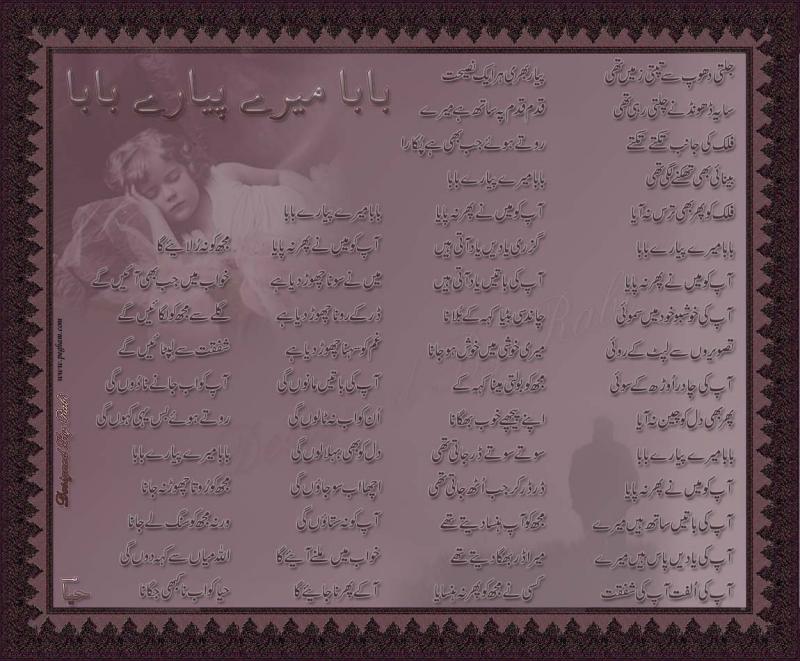 بابا میرے پیارے بابا
جلتی دھوپ سے تپتی زمیں تھی
سایہ ڈھونڈنے چلتی رہی تھی
فلک کی جانب تکتے تکتے
بینائی بھی تھکنے لگی تھی
فلک کو پھر بھی ترس نہ آیا
بابا میرے پیارے بابا
آپ کو میں نے پھر نہ پایا
آپ کی خوشبو خود میں سموئی
تصویروں سے لپٹ کے روئی
آپ کی چادر اوڑھ کے سوئی
پھر بھی دل کو چین نہ آیا
بابا میرے پیارے بابا
آپ کو میں نے پھر نہ پایا
آپ کی باتیں ساتھ ہیں میرے
آپ کی یادیں پاس ہیں میرے
آپ کی اُلفت آپ کی شفقت
پیار بھری ہر ایک نصیحت
قدم قدم پہ ساتھ ہے میرے
روتے ہوئے جب بھی ہے پکارا
بابا میرے پیارے بابا
آپ کو میں نے پھر نہ پایا
گزری یادیں یاد آتی ہیں
آپ کی باتیں یاد آتی ہیں
چاند سی بٹیا کہہ کے بُلانا
میری خوشی میں خوش ہو جانا
مجھ کو بولتی مینا کہہ کے
اپنے پیچھے خوب بھگانا
سوتے سوتے ڈر جاتی تھی
ڈر ڈر کر جب اُٹھ جاتی تھی
مجھ کو آپ ہنسا دیتے تھے
میرا ڈر بھگا دیتے تھے
کسی نے مجھ کو پھر نہ ہنسایا
بابا میرے پیارے بابا
آپ کو میں نے پھر نہ پایا
میں نے سونا چھوڑ دیا ہے
ڈر کے رونا چھوڑ دیا ہے
غم کو سہنا چھوڑ دیا ہے
آپ کی باتیں مانوں گی
اُن کو اب نہ ٹالوں گی
دل کو بھی بہلا لوں گی
اچھا اب سو جاؤں گی
آپ کو نہ ستاؤں گی
خواب میں ملنے آئیے گا
آ کے پھر نا جایئے گا
مجھ کو نہ رُلائیے گا
خواب میں جب بھی آئیں گے
گلے سے مجھ کو لگائیں گے
شفقت سے لپٹائیں گے
آپ کو اب جانے نا دوں گی
روتے ہوئے بس یہی کہوں گی
بابا میرے پیارے بابا
مجھ کو روتا چھوڑ نہ جانا
ورنہ مجھ کو سنگ لے جانا
اللہ میاں سے کہہ دوں گی
حیا کو اب نا کبھی جگانا
حیا
www.pegham.com